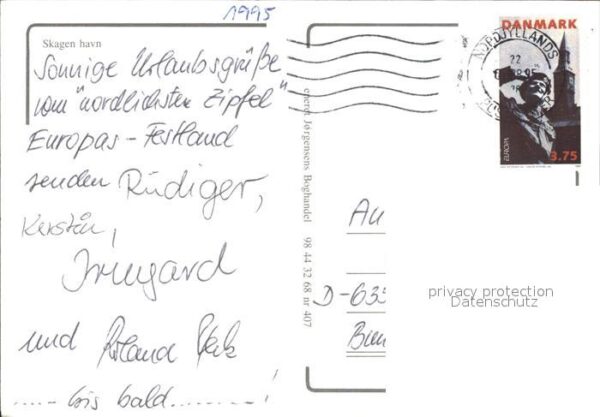 1995
Skagen havn
Sonnige Urlaubsgrüße
vom "nördlichsten Zipfel"
Europas - Festland
senden Rüdiger,
Kerstin,
Irmgard
und Roland
..... bis bald ........!
eneret Jørgensens Boghandel 98 44 32 68 nr 407
DANMARK
EUROPA
3.75
NORDJYLLANDS
22
An
D-635
privacy protection
Datenschutz